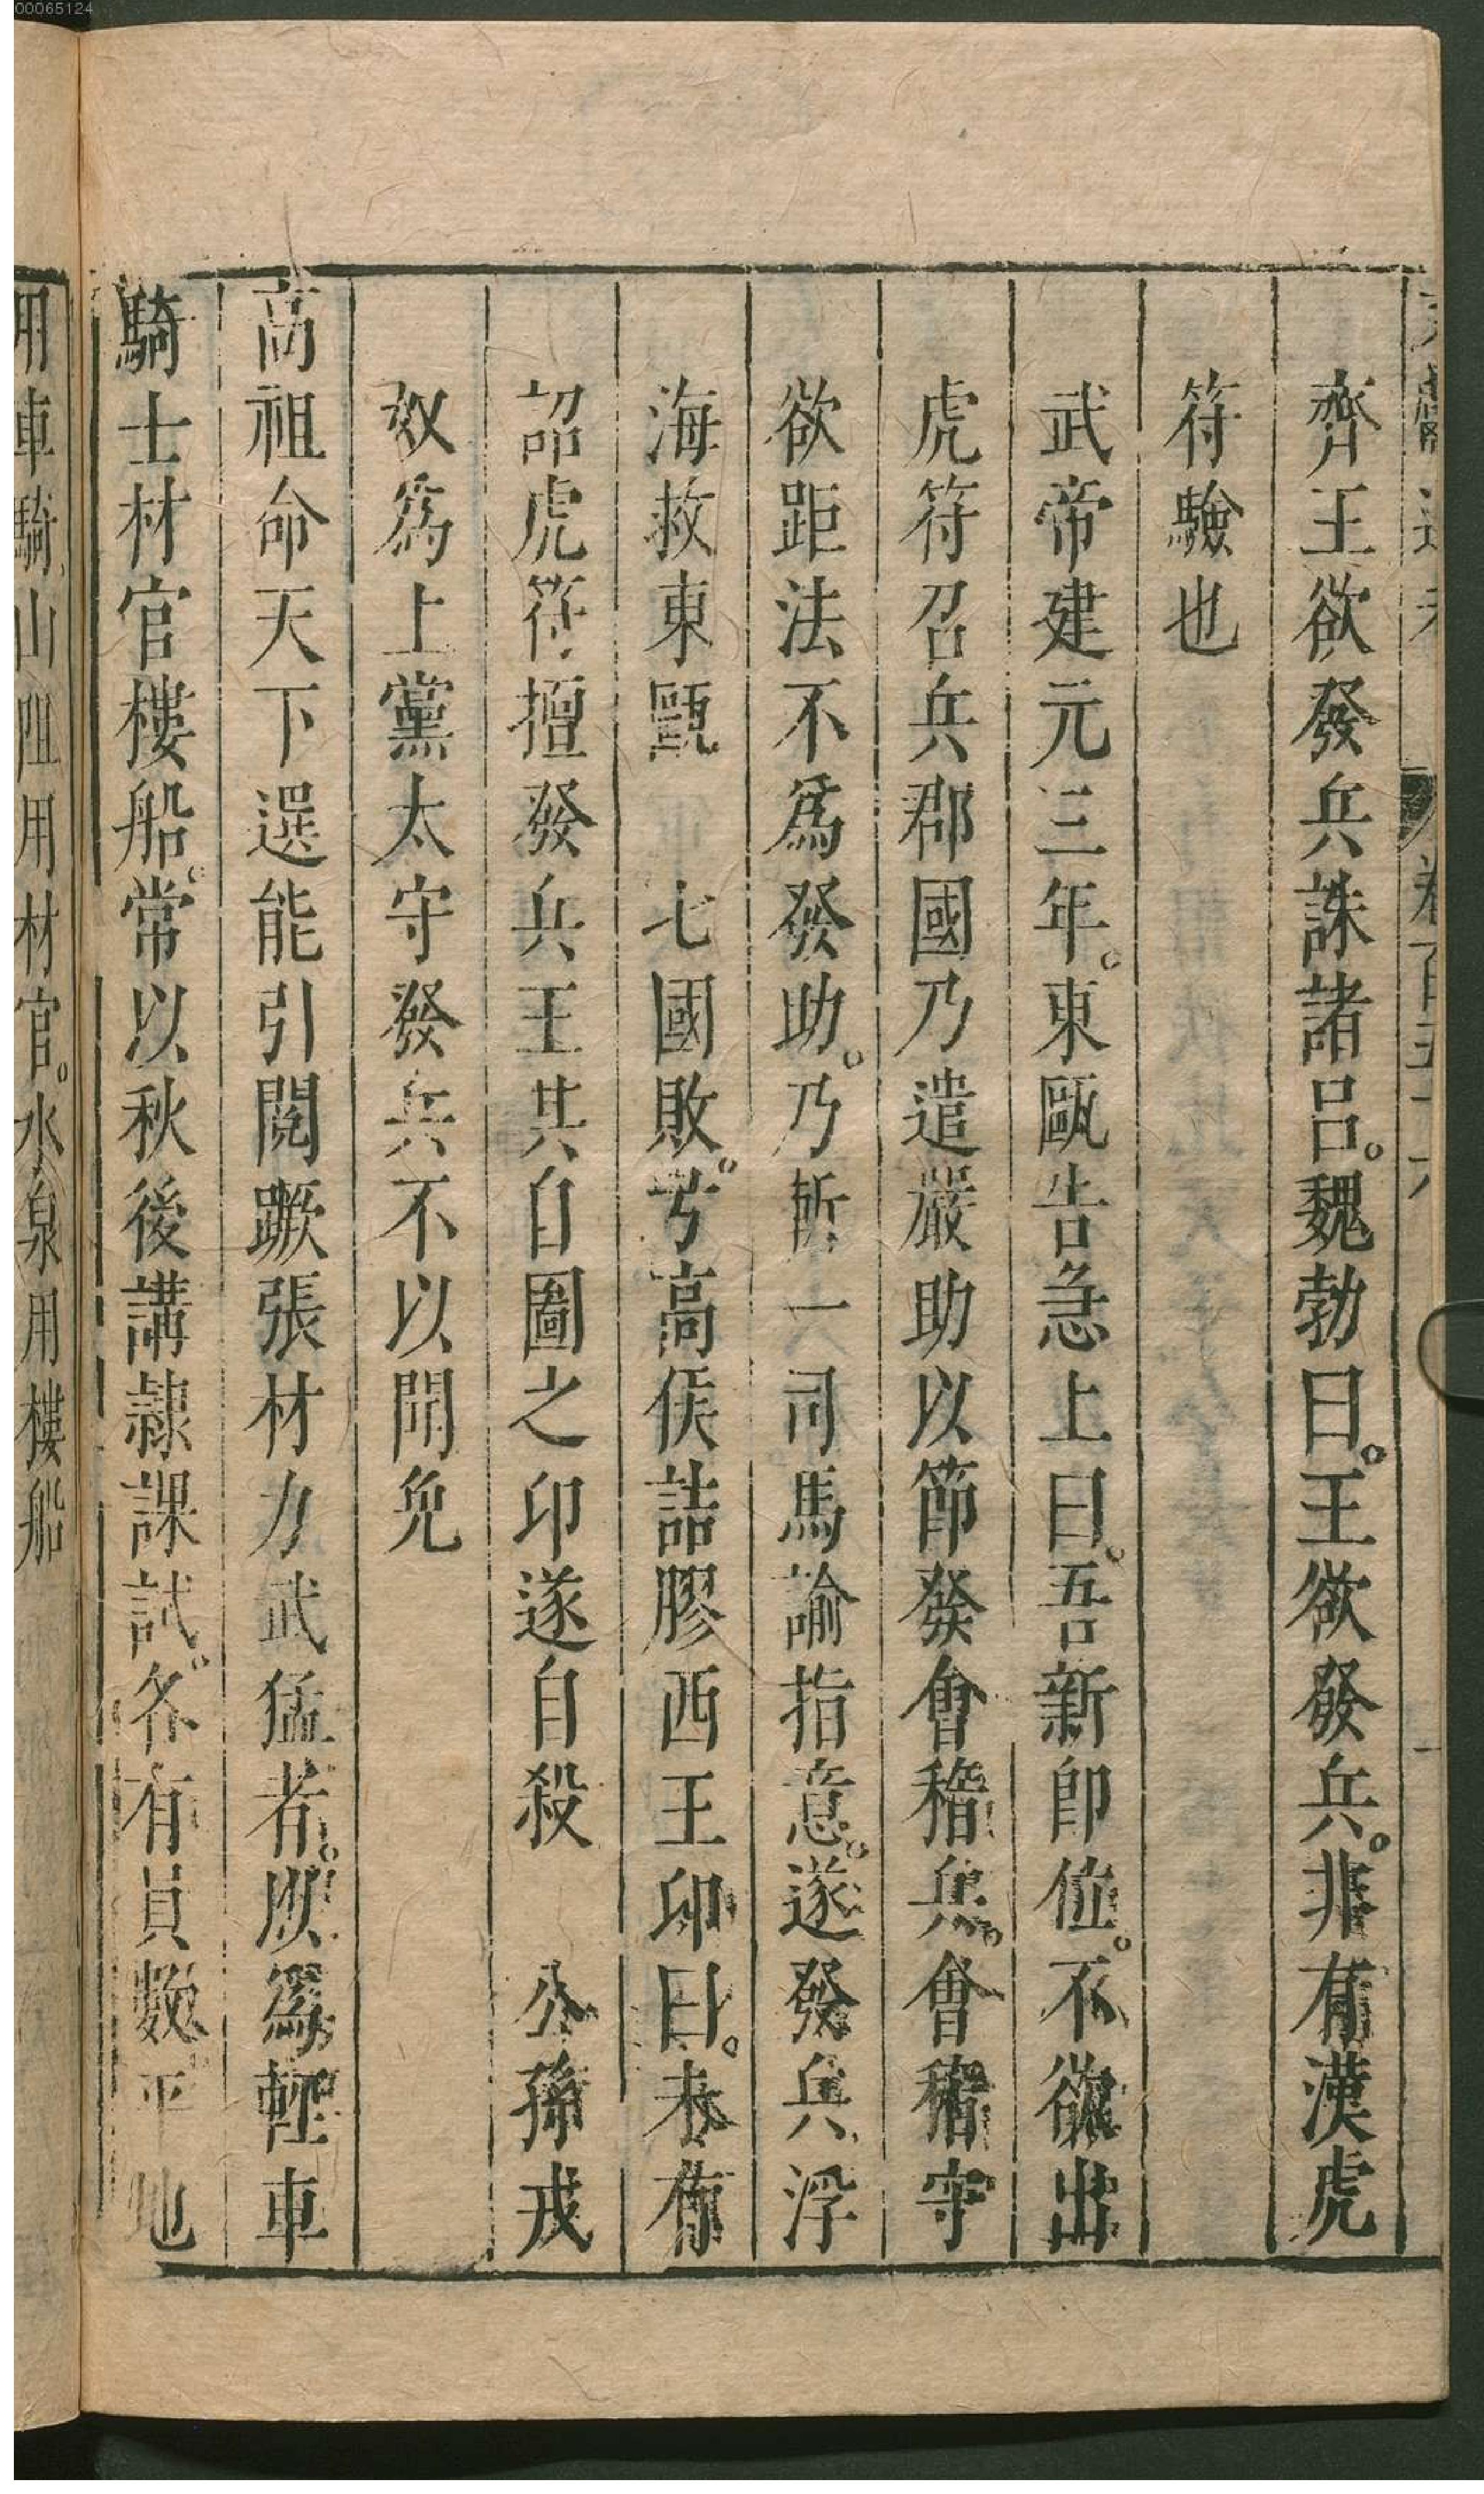 齊王欲發兵誅諸呂。魏勃曰。王欲發兵。非有漢虎
符驗也
武帝建元三年。東甌告急上曰。吾新卽位。不欲出
虎符召兵郡國乃遣嚴助以節發會稽兵。會稽守
欲距法不爲發助。乃斬一司馬諭指意。遂發兵浮
海救東甌　七國敗。弓高侯詰膠西王卬曰。未有
詔虎符擅發兵王其自圖之卬遂自殺　公孫戎
奴爲上黨太守發兵不以聞免
高祖命天下選能引關蹶張材力武猛者。以爲輕車
騎士材官樓船。常以秋後講隸課試。各有員數。平地
用車騎山阻用材官。水泉用樓船
00065124